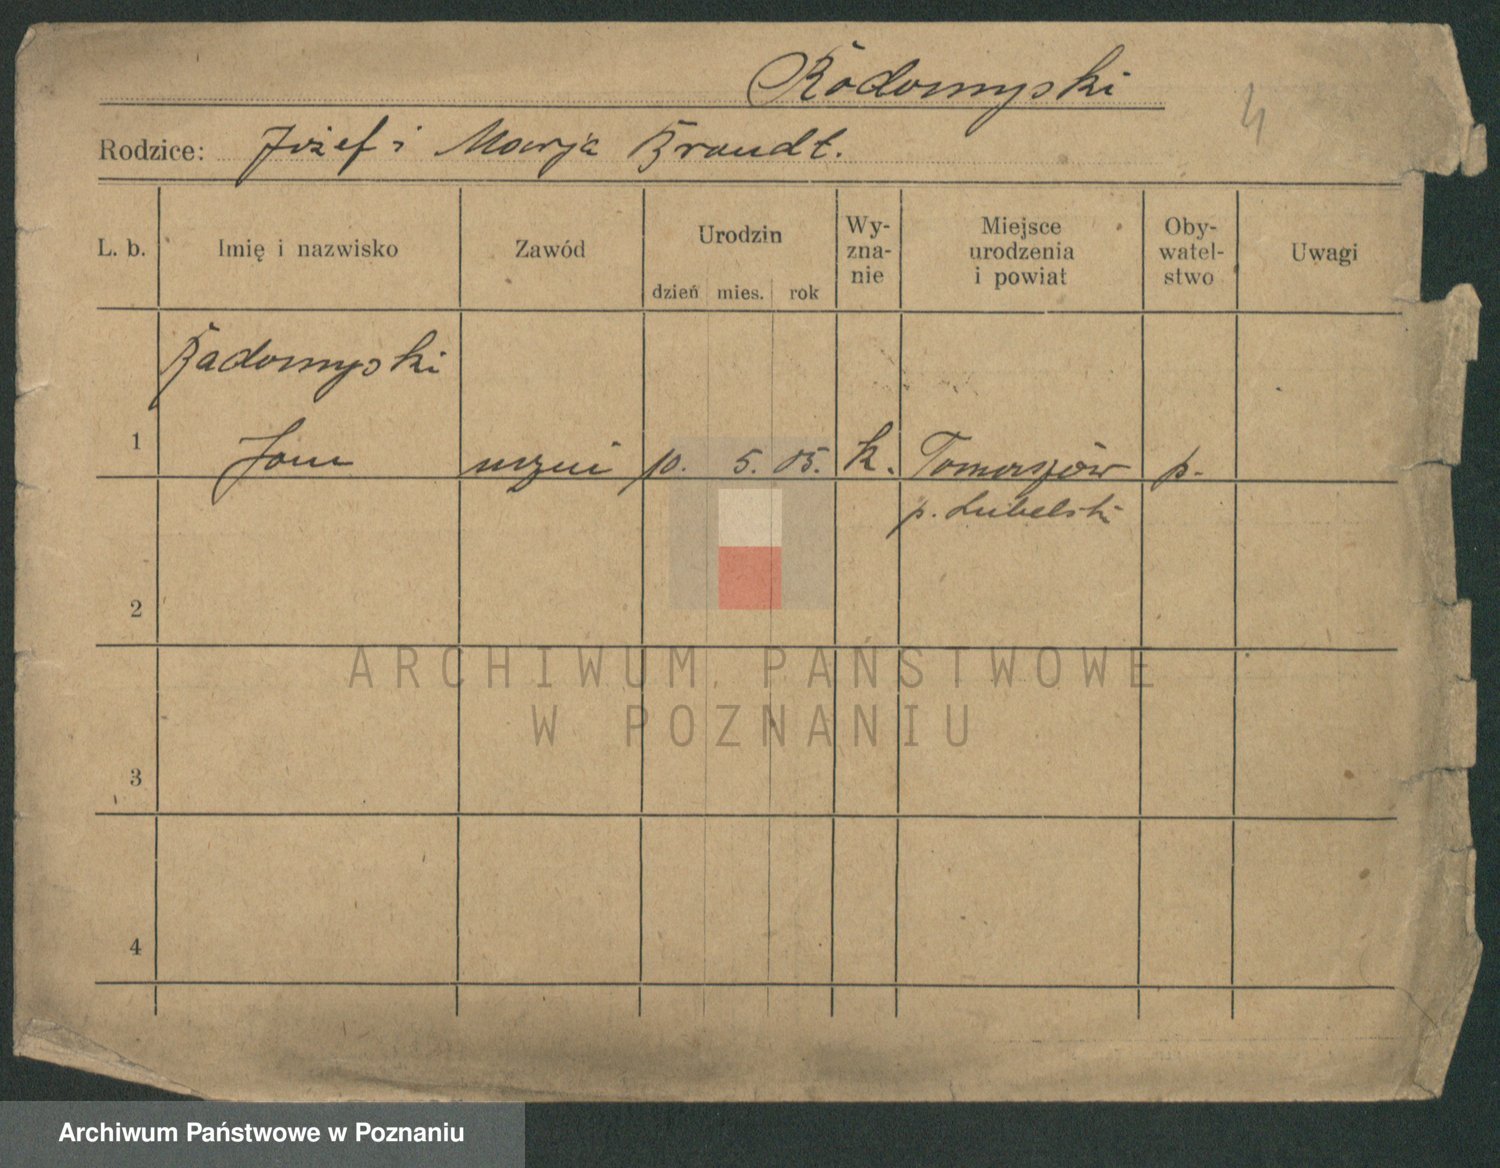 Radomyski
4
Rodzice: Józef i Marja Brandt.
L. b. Imię i nazwisko Zawód Urodzin dzień mies. rok Wy-zna-nie Miejsce urodzenia i powiat Oby-watel-stwo Uwagi
Radomyski
1 Jan uczeń 10. 5. 05. k. Tomaszów p.
p. Lubelski
2
ARCHIWUM PAŃSTWOWE
W POZNANIU
3
4
Archiwum Państwowe w Poznaniu